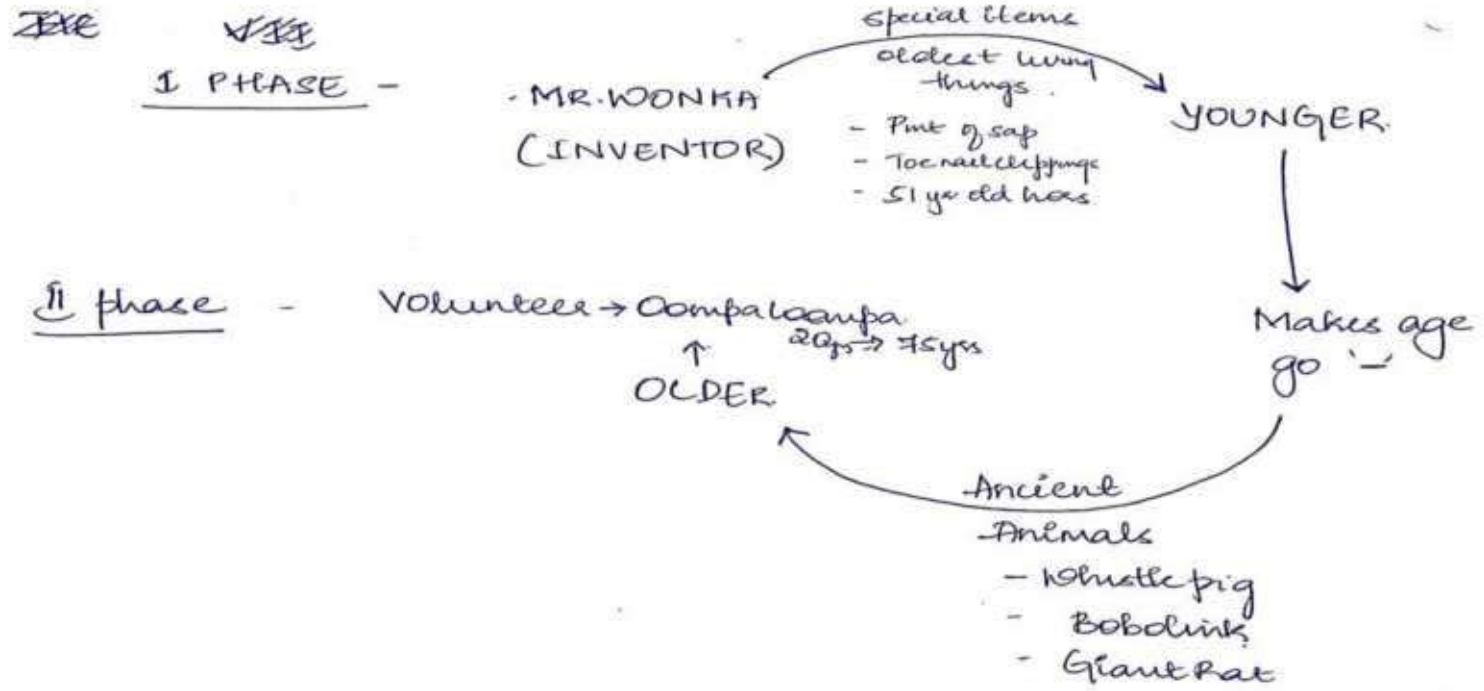 I PHASE -
MR. WONKA
(INVENTOR)
special items
oldest living
things.
- Pint of sap
- Toe nail clippings
- 51 yr old hors
YOUNGER.
Makes age
go '-'
II phase - Volunteer → Oompaloompa
20yrs → 75yrs
↑
OLDER
Ancient
Animals
- Whistle pig
- Bobolink
- Giant Rat